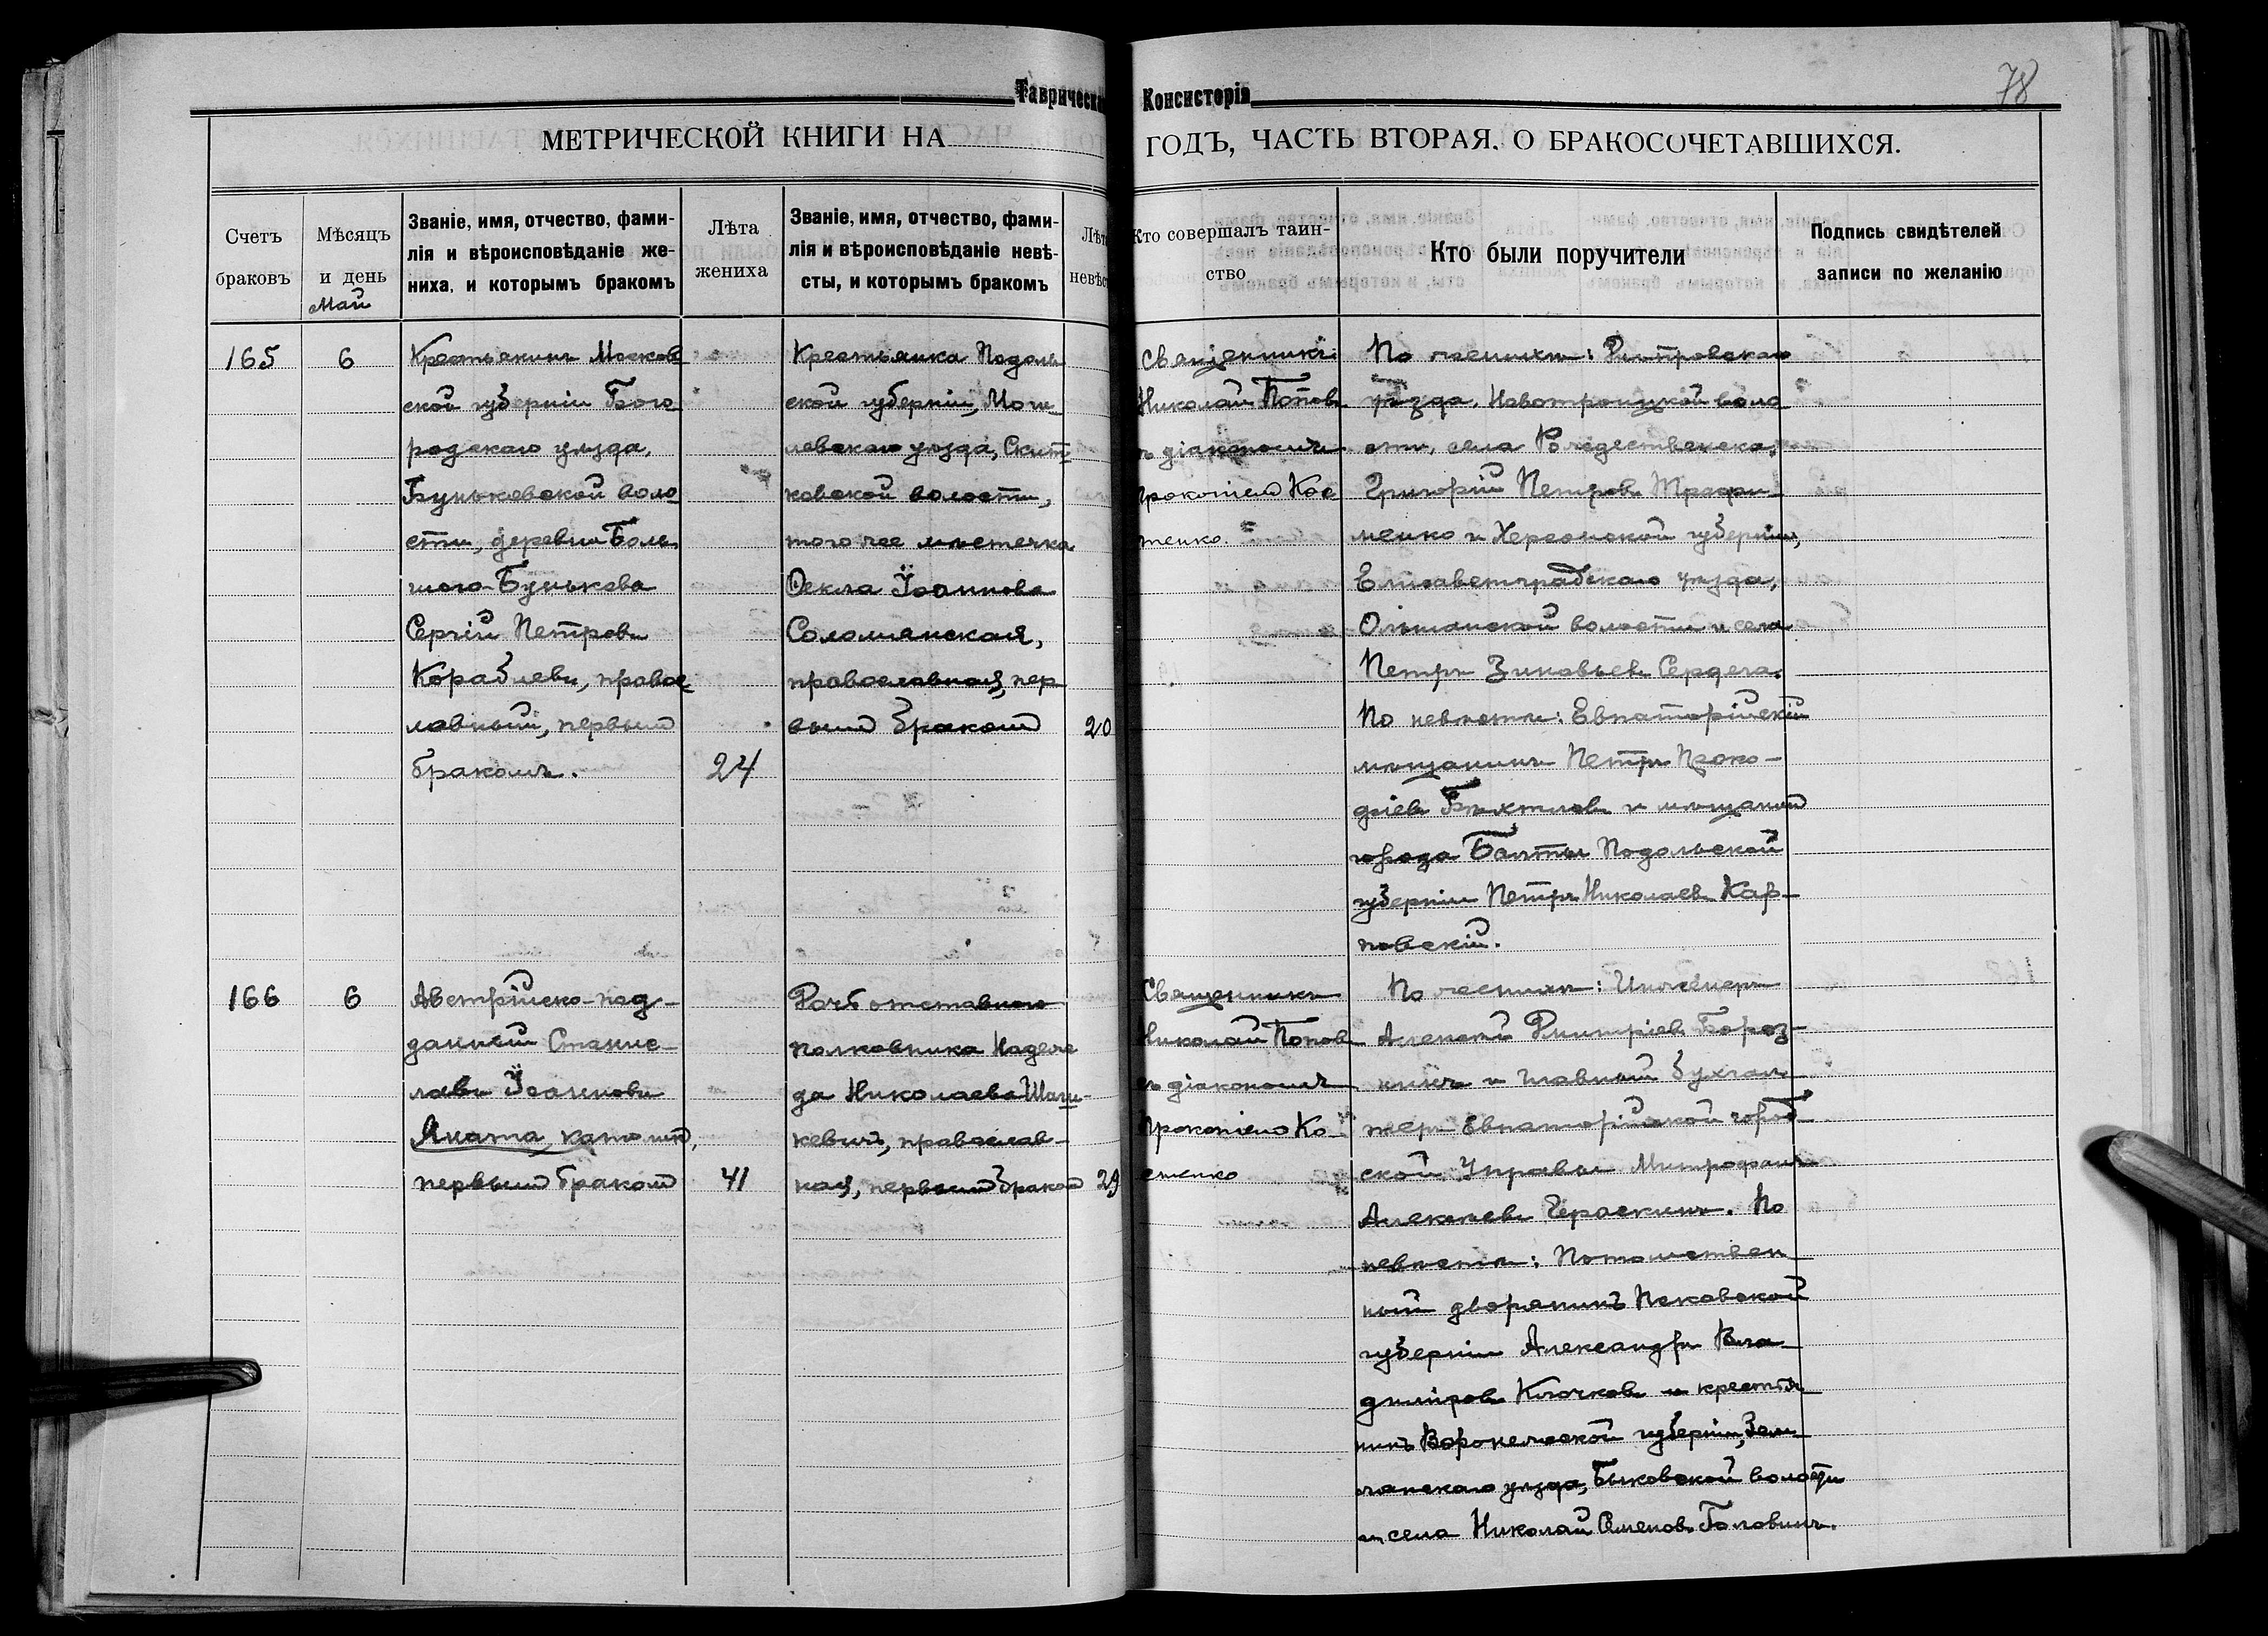 Таврическ
Консисторія
78
МЕТРИЧЕСКОЙ КНИГИ НА
ГОДЪ, ЧАСТЬ ВТОРАЯ. О БРАКОСОЧЕТАВШИХСЯ.
Счетъ
браковъ
Мѣсяцъ
и день
Май
Званіе, имя, отчество, фами-
лія и вѣроисповѣданіе же-
ниха, и которымъ бракомъ
Лѣта
жениха
Званіе, имя, отчество, фами-
лія и вѣроисповѣданіе невѣ-
сты, и которымъ бракомъ
Лѣт
невѣс
Кто совершалъ таин-
ство
Кто были поручители
Подпись свидѣтелей
записи по желанію
165
6
Крестьянинъ Москов
ской губерніи Бого
родскаго уѣзда,
Буньковской воло
сти, деревни Боль
шого-Бунькова
Сергій Петровъ
Кораблевъ, правос
лавный, первым
бракомъ.
24
Крестьянка Подоль
ской губерніи, Моги
левскаго уѣзда,
ковской волости,
того же мѣстечка
Ѳекла Іоаннова
Соломянская,
православная, пер
вым браком
20
Священникъ
Николай Поповъ
съ діакономъ
Прокопіем Кос
тенко
По женихѣ: Днѣпровскаго
уѣзда, Новотроицкой воло
сти, села Рождественска,
Григорій Петровъ Трофи
менко и Херсонской губерніи,
Елисаветградскаго уѣзда,
Ольшанской волости и села
Петръ Зиновьевъ Сердега.
По невѣстѣ: Евпаторійскій
мѣщанинъ Петръ Проко-
фіевъ Бѣхтловъ и мѣщанин
города Балты Подольской
губерніи Петръ Николаевъ Кар-
повскій.
166
6
Австрійско-под-
данный Станис-
лавъ Іоанновъ
Яната, католик,
первым браком
41
Дочь отставного
полковника Надеж
да Николаева Шаш-
кевичъ, православ-
ная, первым браком
29
Священникъ
Николай Поповъ
съ діакономъ
Прокопіем Ко-
стенко
По женихѣ: Инженеръ
Алексѣй Дмитріевъ Бороз-
кинъ и главный бухгал-
теръ Евпаторійской город-
ской Управы Митрофанъ
Алексѣевъ Гераскинъ. По
невѣстѣ: Потомствен
ный дворянинъ Псковской
губерніи Александръ Вла-
диміровъ Клочковъ и крестья-
нинъ Воронежской губерніи, Зем-
лянскаго уѣзда, Быковской волости
и села Николай Семеновъ Головинъ.